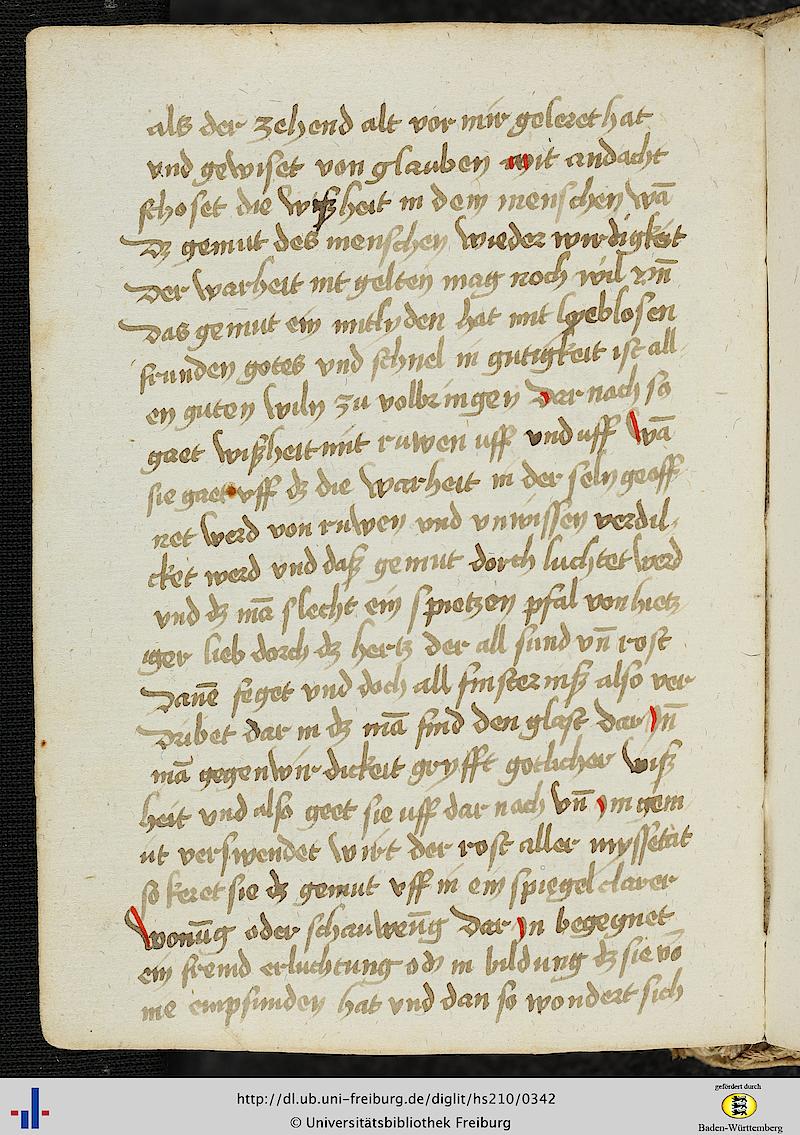 als der zehend alt vor mir geleret hat
vnd gewiset von glauben mit andacht
schoset die wißheit in dem menschen wā
dz gemut des menschen wieder wirdigkeit
der warheit nit gelten mag noch wil vn̄
das gemut ein mitlyden hat mit lyeblosen
frunden gotes vnd schnel in gutigkeit ist all
en guten wiln zu volbringen dar nach so
gaet wißheit mit ruwen uff vnd uff wā
sie gaet vff dz die warheit in der seln geoff
net werd von ruwen vnd vnwissen verdil
cket werd vnd daß gemut dorch luchtet werd
vnd dz mā slecht ein spietzen pfal von hietz
iger lieb dorch dz hertz der all sund vn̄ rost
danē feget vnd doch all finsterniß also ver
dribet dar in dz mā find den glast dar Jn̄
mā gegenwirdickeit gryfft gotlicher wiß
heit vnd also geet sie uff dar nach vn̄ jm gem
ut verswendet wirt der rost aller myssetat
so keret sie dz gemut vff in ein spiegel clarer
wonūg oder schauwen̄g dar Jn begegnet
ein fremd erluchtung od in bildung dz sie vō
me empfunden hat vnd dan so wondert sich
http://dl.ub.uni-freiburg.de/diglit/hs210/0342
© Universitätsbibliothek Freiburg
gefördert durch
Baden-Württemberg